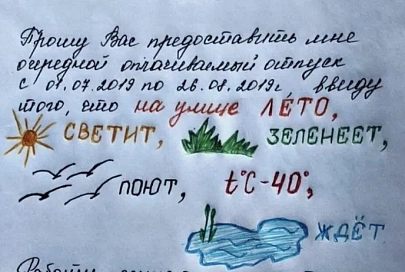 Прошу Вас предоставить мне
очередной оплачиваемый отпуск
с 01.07.2019 по 26.08.2019г. ввиду
того, что на улице ЛЕ́ТО,
СВЕТИТ, ЗЕЛЕНЕЕТ,
ПОЮТ, t°C-40°,
ЖДЁТ.